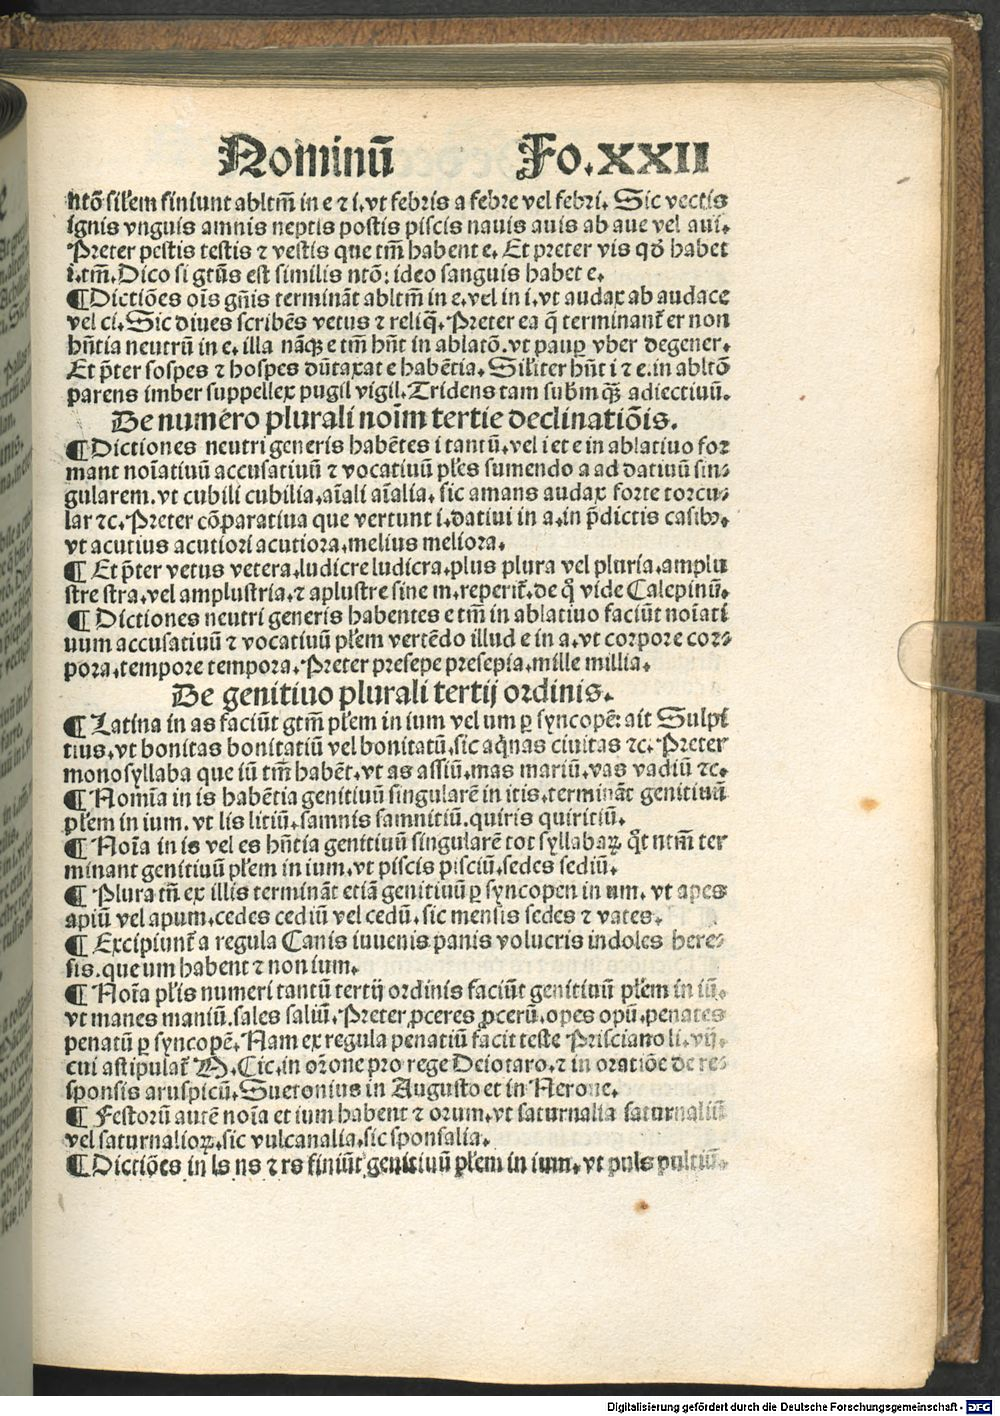 Nominū Fo.XXII
ntō sil'em finiunt abltm̄ in e ⁊ i. vt febris a febre vel febri. Sic vectis
ignis vnguis amnis neptis postis piscis nauis auis ab aue vel aui.
Preter pestis testis ⁊ vestis que tm̄ habent e. Et preter vis qd' habet
i.tm̄. Dico si gtūs est similis ntō: ideo sanguis habet e.
¶ Dictiões oīs gn̄is termināt abltm̄ in e.vel in i.vt audax ab audace
vel ci. Sic diues scribēs vetus ⁊ reliq̄. Preter ea q̄ terminant̄ er non
hn̄tia neutrū in e. illa nāqꝫ e tm̄ hn̄t in ablatō. vt paup̱ vber degener.
Et p̄ter sospes ⁊ hospes dūtaxat e habētia. Siliter hn̄t i ⁊ e.in abltō
parens imber suppellex pugil vigil. Tridens tam subm̄ qꝫ adiectiuū.
De numero plurali noīm tertie declinatiōis.
¶ Dictiones neutri generis habētes i tantū.vel i et e in ablatiuo for
mant noīatiuū accusatiuū ⁊ vocatiuū pl'es sumendo a ad datiuū sin⸗
gularem. vt cubili cubilia.aīali aīalia. sic amans audax forte torcu⸗
lar ⁊c. Preter cōparatiua que vertunt i.datiui in a.in p̄dictis casibꝰ.
vt acutius acutiori acutiora.melius meliora.
¶ Et p̄ter vetus vetera.ludicre ludicra.plus plura vel pluria.amplu
stre stra.vel amplustria.⁊ aplustre sine m.reperit̄.de q̊ vide Calepinū.
¶ Dictiones neutri generis habentes e tm̄ in ablatiuo faciūt noīati
uum accusatiuū ⁊ vocatiuū pl'em vertēdo illud e in a.vt corpore cor⸗
pora.tempore tempora. Preter presepe presepia.mille millia.
De genitiuo plurali tertij ordinis.
¶ Latina in as faciūt gtm̄ pl'em in ium vel um p̱ syncopē: ait Sulpi
tius.vt bonitas bonitatiū vel bonitatū.sic aq̄nas ciuitas ⁊c. Preter
monosyllaba que iū tm̄ habēt.vt as assiū.mas mariū.vas vadiū ⁊c.
¶ Nomīa in is habētia genitiuū singularē in itis.termināt genitiuū
pl'em in ium. vt lis litiū.samnis samnitiū.quiris quiritiū.
¶ Noīa in is vel es hn̄tia genitiuū singularē tot syllabaꝝ qͦt ntm̄ ter
minant genitiuū pl'em in ium.vt piscis pisciū.sedes sediū.
¶ Plura tn̄ ex illis termināt etiā genitiuū p̱ syncopen in um. vt apes
apiū vel apum.cedes cediū vel cedū. sic mensis sedes ⁊ vates.
¶ Excipiunt̄ a regula Canis iuuenis panis volucris indoles here⸗
sis.que um habent ⁊ non ium.
¶ Noīa pl'is numeri tantū tertij ordinis faciūt genitiuū pl'em in iū.
vt manes maniū.sales saliū. Preter ꝓceres ꝓcerū.opes opū.penates
penatū p̱ syncopē. Nam ex regula penatiū facit teste Prisciano li.vij.
cui astipulat̄ M.Cic.in orōne pro rege Deiotaro.⁊ in oratiōe de re⸗
sponsis aruspicū.Suetonius in Augusto et in Nerone.
¶ Festorū autē noīa et ium habent ⁊ orum.vt saturnalia saturnaliū
vel saturnalioꝝ.sic vulcanalia.sic sponsalia.
¶ Dictiões in ls ns ⁊ rs finiūt genitiuū pl'em in ium. vt puls pultiū.
Digitalisierung gefördert durch die Deutsche Forschungsgemeinschaft - DFG